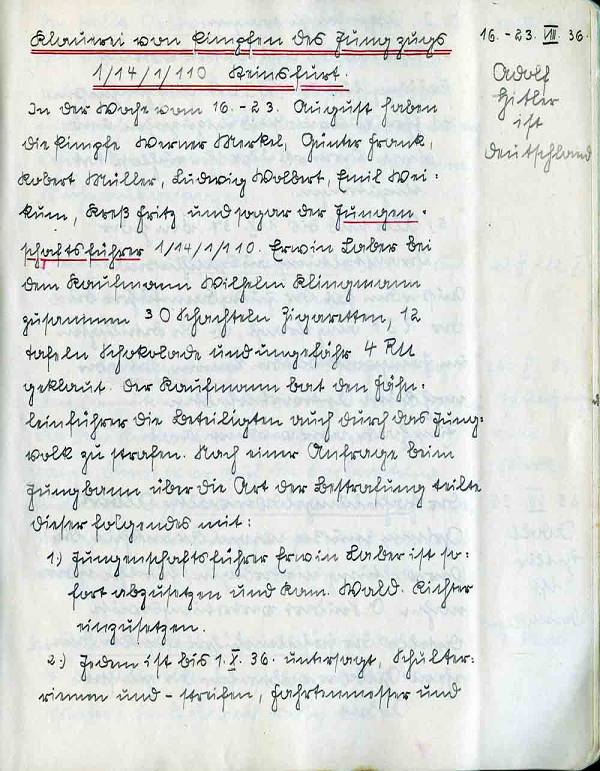 Klauerei von Pimpfen des Jungzugs
1/14/1/110 Steinsfurt.
In der Woche vom 16.-23. August haben
die Pimpfe Werner Merkel, Günter Frank,
Robert Müller, Ludwig Wolbert, Emil Wei-
kum, Kreß Fritz und sogar der Jungen-
schaftsführer 1/14/1/110. Erwin Laber bei
dem Kaufmann Wilhelm Klingmann
zusammen 30 Schachteln Zigaretten, 12
Tafeln Schokolade und ungefähr 4 RM
geklaut. Der Kaufmann bat den Fähn-
leinführer die Beteiligten auch durch das Jung-
volk zu strafen. Nach einer Anfrage beim
Jungbann über die Art der Bestrafung teilte
dieser folgendes mit:
1.) Jungenschaftsführer Erwin Laber ist so-
fort abzusetzen und Kam. Wald. Richter
einzusetzen.
2.) Jedem ist bis 1.X.36. untersagt, Schulter-
riemen und -streifen, Fahrtenmesser und
16.-23. VIII. 36.
Adolf
Hitler
ist
Deutschland